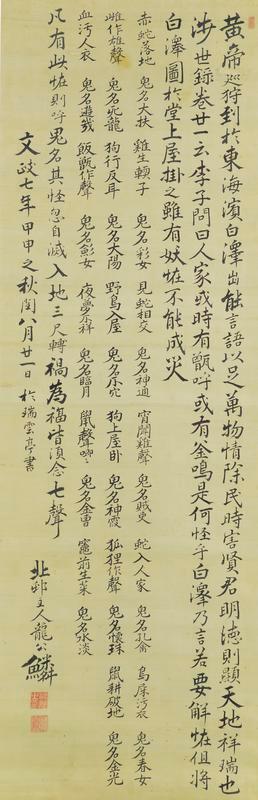 黄帝巡狩到於東海濱白澤出能言語以是萬物情除民時害賢君明徳則顕天地祥瑞也
渉世録巻廿一云李子問曰人家或時有甑呼或有釜鳴是何怪乎白澤乃言若要解怪但将
白澤圖於堂上屋掛之雖有妖怪不能成災
赤蛇落地 鬼名大扶 雞生輭子 鬼名彩女 見蛇相交 鬼名神通 宵聞雞聲 鬼名賊吏 蛇入人家 鬼名孔禽 鳥屎汚衣 鬼名春女
雌作雄聲 鬼名 龍 狗行反耳 鬼名大陽 野鳥入屋 鬼名 穴 狗上屋卧 鬼名神霞 狐狸作聲 鬼名懐珠 鼠耕破地 鬼名金光
血汚人衣 鬼名遊 飯甑作聲 鬼名 女 夜夢不祥 鬼名臨月 鼠聲唧々 鬼名金曹 竈前生菜 鬼名水淡
凡有此怪則呼鬼名其怪忽自滅入地三尺轉禍為福皆須念七聲
文政七年甲申之秋閏八月廿一日 於瑞雲亭書
北 主人龍公鱗